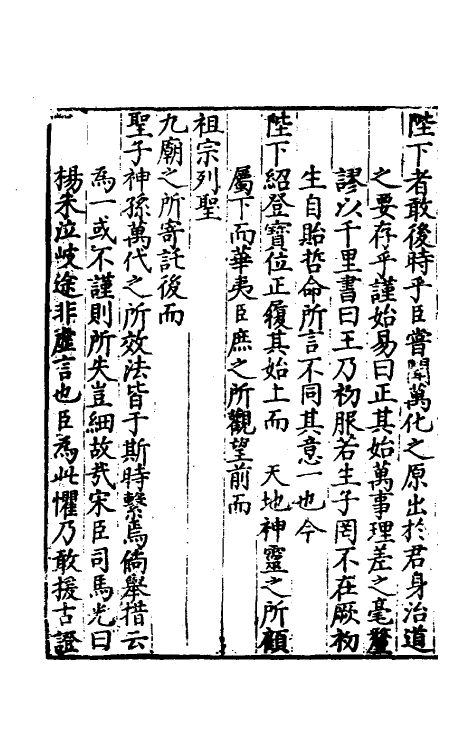 陛下者敢後時乎臣嘗聞萬化之原出於君身治道
之要存乎謹始易曰正其始萬事理差之毫釐
謬以千里書曰王乃初服若生子罔不在厥初
生自貽哲命所言不同其意一也今
陛下紹登寶位正履其始上而　天地神靈之所顧
屬下而華夷臣庶之所觀望前而
祖宗列聖
九廟之所寄託後而
聖子神孫萬代之所效法皆于斯時繫焉倘舉措云
為一或不謹則所失豈細故哉宋臣司馬光曰
楊朱泣岐途非虛言也臣為此懼乃敢援古證